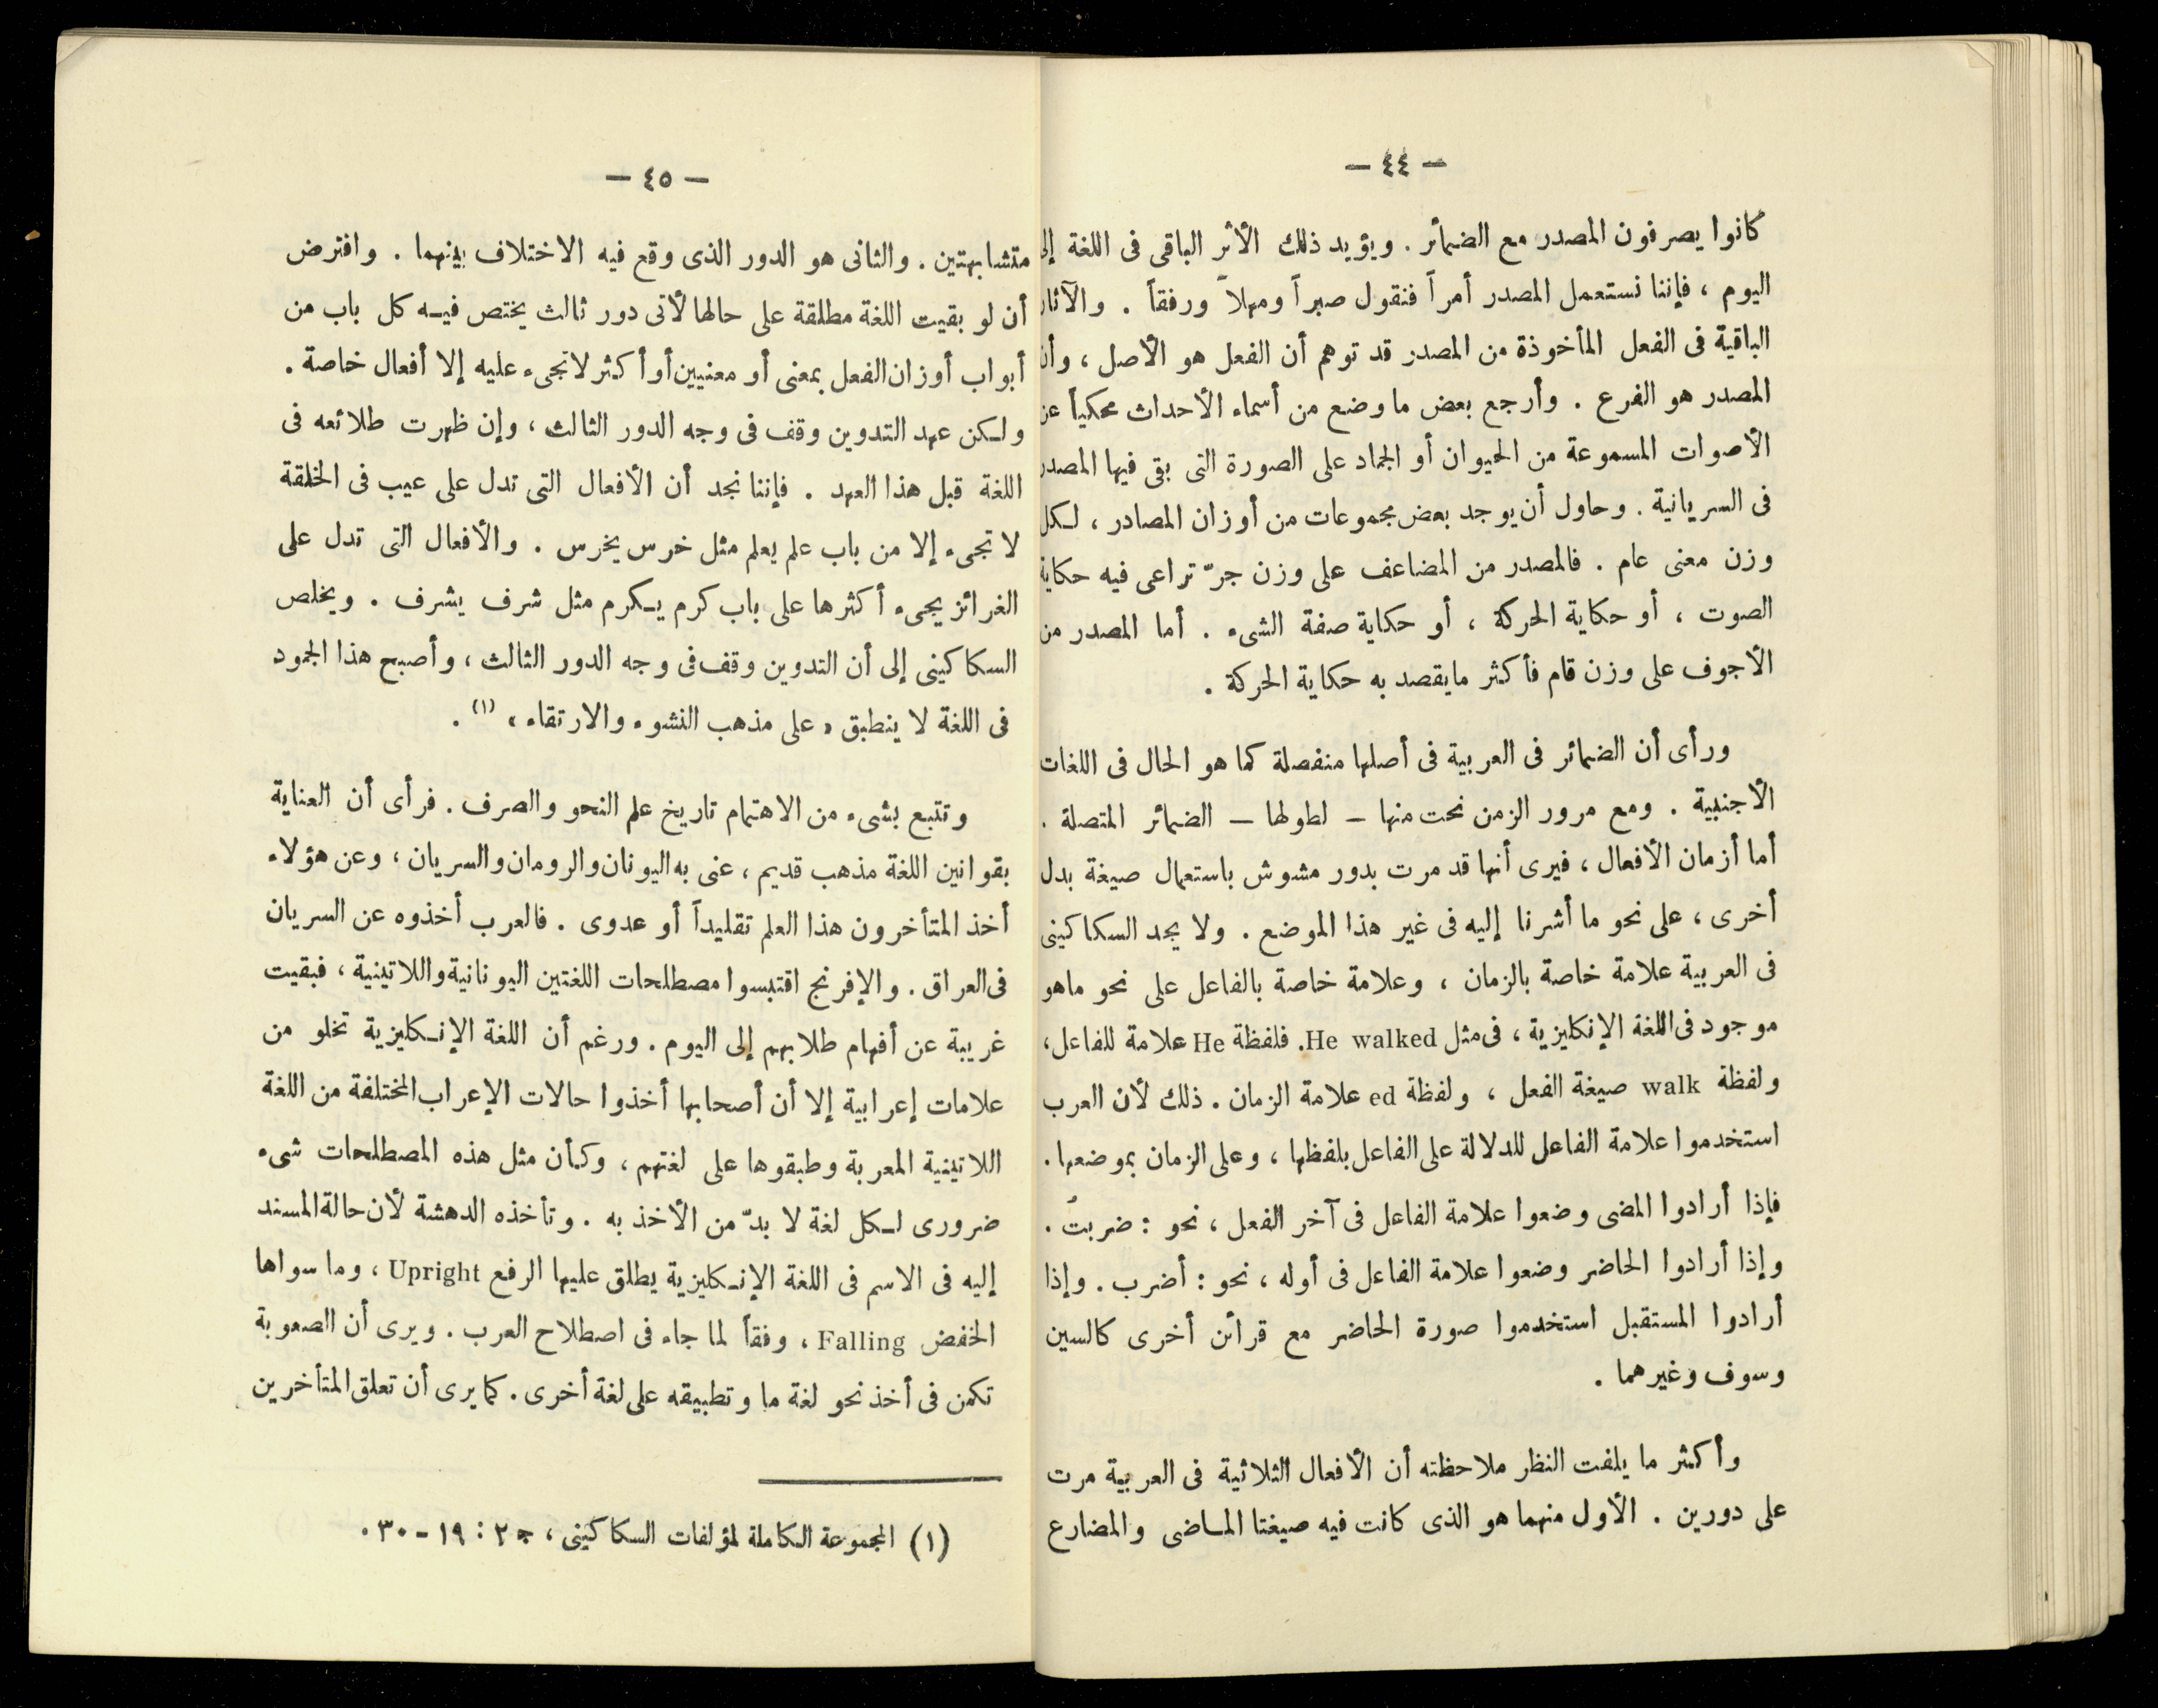 — ٤٤ —
كانوا يصرفون المصدر مع الضمائر . ويؤيد ذلك الأثر الباقى فى اللغة إلى
اليوم ، فإننا نستعمل المصدر أمراً فنقول صبراً ومهلاً ورفقاً . والآثار
الباقية فى الفعل المأخوذة من المصدر قد توهم أن الفعل هو الأصل ، وأن
المصدر هو الفرع . وأرجع بعض ما وضع من أسماء الأحداث محكياً عن
الأصوات المسموعة من الحيوان أو الجماد على الصورة التى بقى فيها المصدر
فى السريانية . وحاول أن يوجد بعض مجموعات من أوزان المصادر ، لكل
وزن معنى عام . فالمصدر من المضاعف على وزن جرّ تراعى فيه حكاية
الصوت ، أو حكاية الحركة ، أو حكاية صفة الشىء . أما المصدر من
الأجوف على وزن قام فأكثر ما يقصد به حكاية الحركة .
ورأى أن الضمائر فى العربية فى أصلها منفصلة كما هو الحال فى اللغات
الأجنبية . ومع مرور الزمن نحت منها – لطولها – الضمائر المتصلة .
أما أزمان الأفعال ، فيرى أنها قد مرت بدور مشوش باستعمال صيغة بدل
أخرى ، على نحو ما أشرنا إليه فى غير هذا الموضع . ولا يجد السكاكينى
فى العربية علامة خاصة بالزمان ، وعلامة خاصة بالفاعل على نحو ماهو
موجود فى اللغة الإنكليزية ، فى مثل He walked. فلفظة He علامة للفاعل،
ولفظة walk صيغة الفعل ، ولفظة ed علامة الزمان . ذلك لأن العرب
استخدموا علامة الفاعل للدلالة على الفاعل بلفظها ، وعلى الزمان بموضعها .
فإذا أرادوا المضى وضعوا علامة الفاعل فى آخر الفعل ، نحو : ضربتُ .
وإذا أرادوا الحاضر وضعوا علامة الفاعل فى أوله ، نحو : أضرب . وإذا
أرادوا المستقبل استخدموا صورة الحاضر مع قرائن أخرى كالسين
وسوف وغيرهما .
وأكثر ما يلفت النظر ملاحظته أن الأفعال الثلاثية فى العربية مرت
على دورين . الأول منهما هو الذى كانت فيه صيغتا الماضى والمضارع
— ٤٥ —
متشابهتين . والثانى هو الدور الذى وقع فيه الاختلاف بينهما . وافترض
أن لو بقيت اللغة مطلقة على حالها لأتى دور ثالث يختص فيه كل باب من
أبواب أوزان الفعل بمعنى أو معنيين أو أكثر لا تجىء عليه إلا أفعال خاصة .
ولكن عهد التدوين وقف فى وجه الدور الثالث ، وإن ظهرت طلائعه فى
اللغة قبل هذا العهد . فإننا نجد أن الأفعال التى تدل على عيب فى الخلقة
لا تجىء إلا من باب علم يعلم مثل خرس يخرس . والأفعال التى تدل على
الغرائز يجىء أكثرها على باب كرم يكرم مثل شرف يشرف . ويخلص
السكاكينى إلى أن التدوين وقف فى وجه الدور الثالث ، وأصبح هذا الجمود
فى اللغة لا ينطبق « على مذهب النشوء والارتقاء » (١) .
وتتبع بشىء من الاهتمام تاريخ علم النحو والصرف . فرأى أن العناية
بقوانين اللغة مذهب قديم ، عنى به اليونان والرومان والسريان ، وعن هؤلاء
أخذ المتأخرون هذا العلم تقليداً أو عدوى . فالعرب أخذوه عن السريان
فى العراق . والإفرنج اقتبسوا مصطلحات اللغتين اليونانية واللاتينية ، فبقيت
غريبة عن أفهام طلابهم إلى اليوم . ورغم أن اللغة الإنكليزية تخلو من
علامات إعرابية إلا أن أصحابها أخذوا حالات الإعراب المختلفة من اللغة
اللاتينية المعربة وطبقوها على لغتهم ، وكأن مثل هذه المصطلحات شىء
ضرورى لكل لغة لا بدّ من الأخذ به . وتأخذه الدهشة لأن حالة المسند
إليه فى الاسم فى اللغة الإنكليزية يطلق عليها الرفع Upright ، وما سواها
الخفض Falling ، وفقاً لما جاء فى اصطلاح العرب . ويرى أن الصعوبة
تكمن فى أخذ نحو لغة ما وتطبيقه على لغة أخرى . كما يرى أن تعلق المتأخرين
(١) المجموعة الكاملة لمؤلفات السكاكينى ، جـ ٢ : ١٩ – ٣٠ .